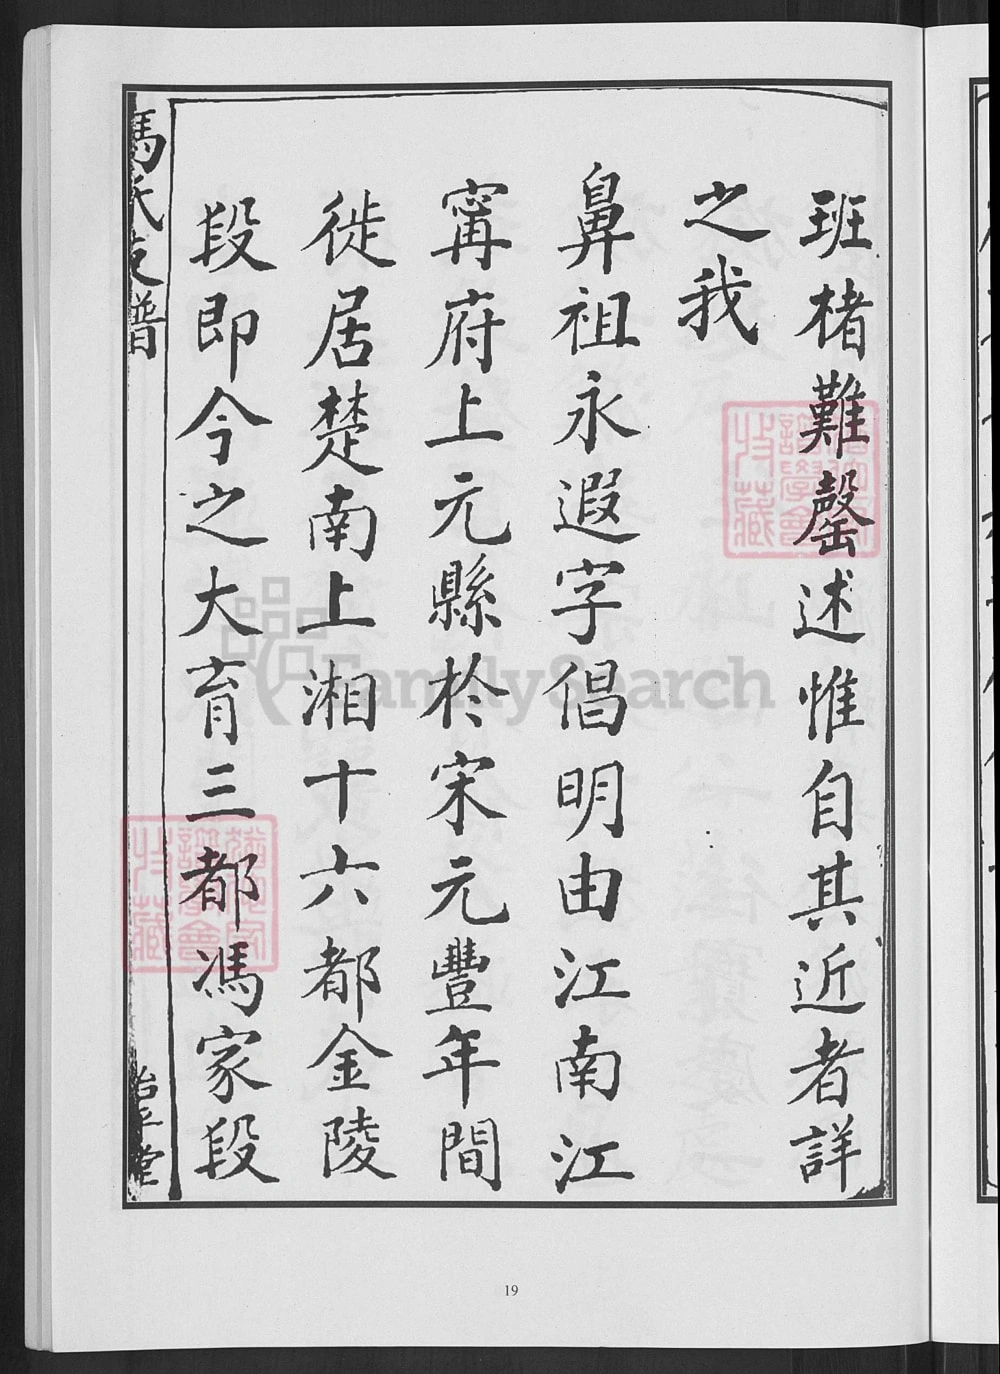 班楮難罄述惟自其近者詳
之我
鼻祖永遐字倡明由江南江
寗府上元縣於宋元豐年間
徙居楚南上湘十六都金陵
段即今之大育三都馮家段
馮氏支譜
治平堂
FamilySearch
19